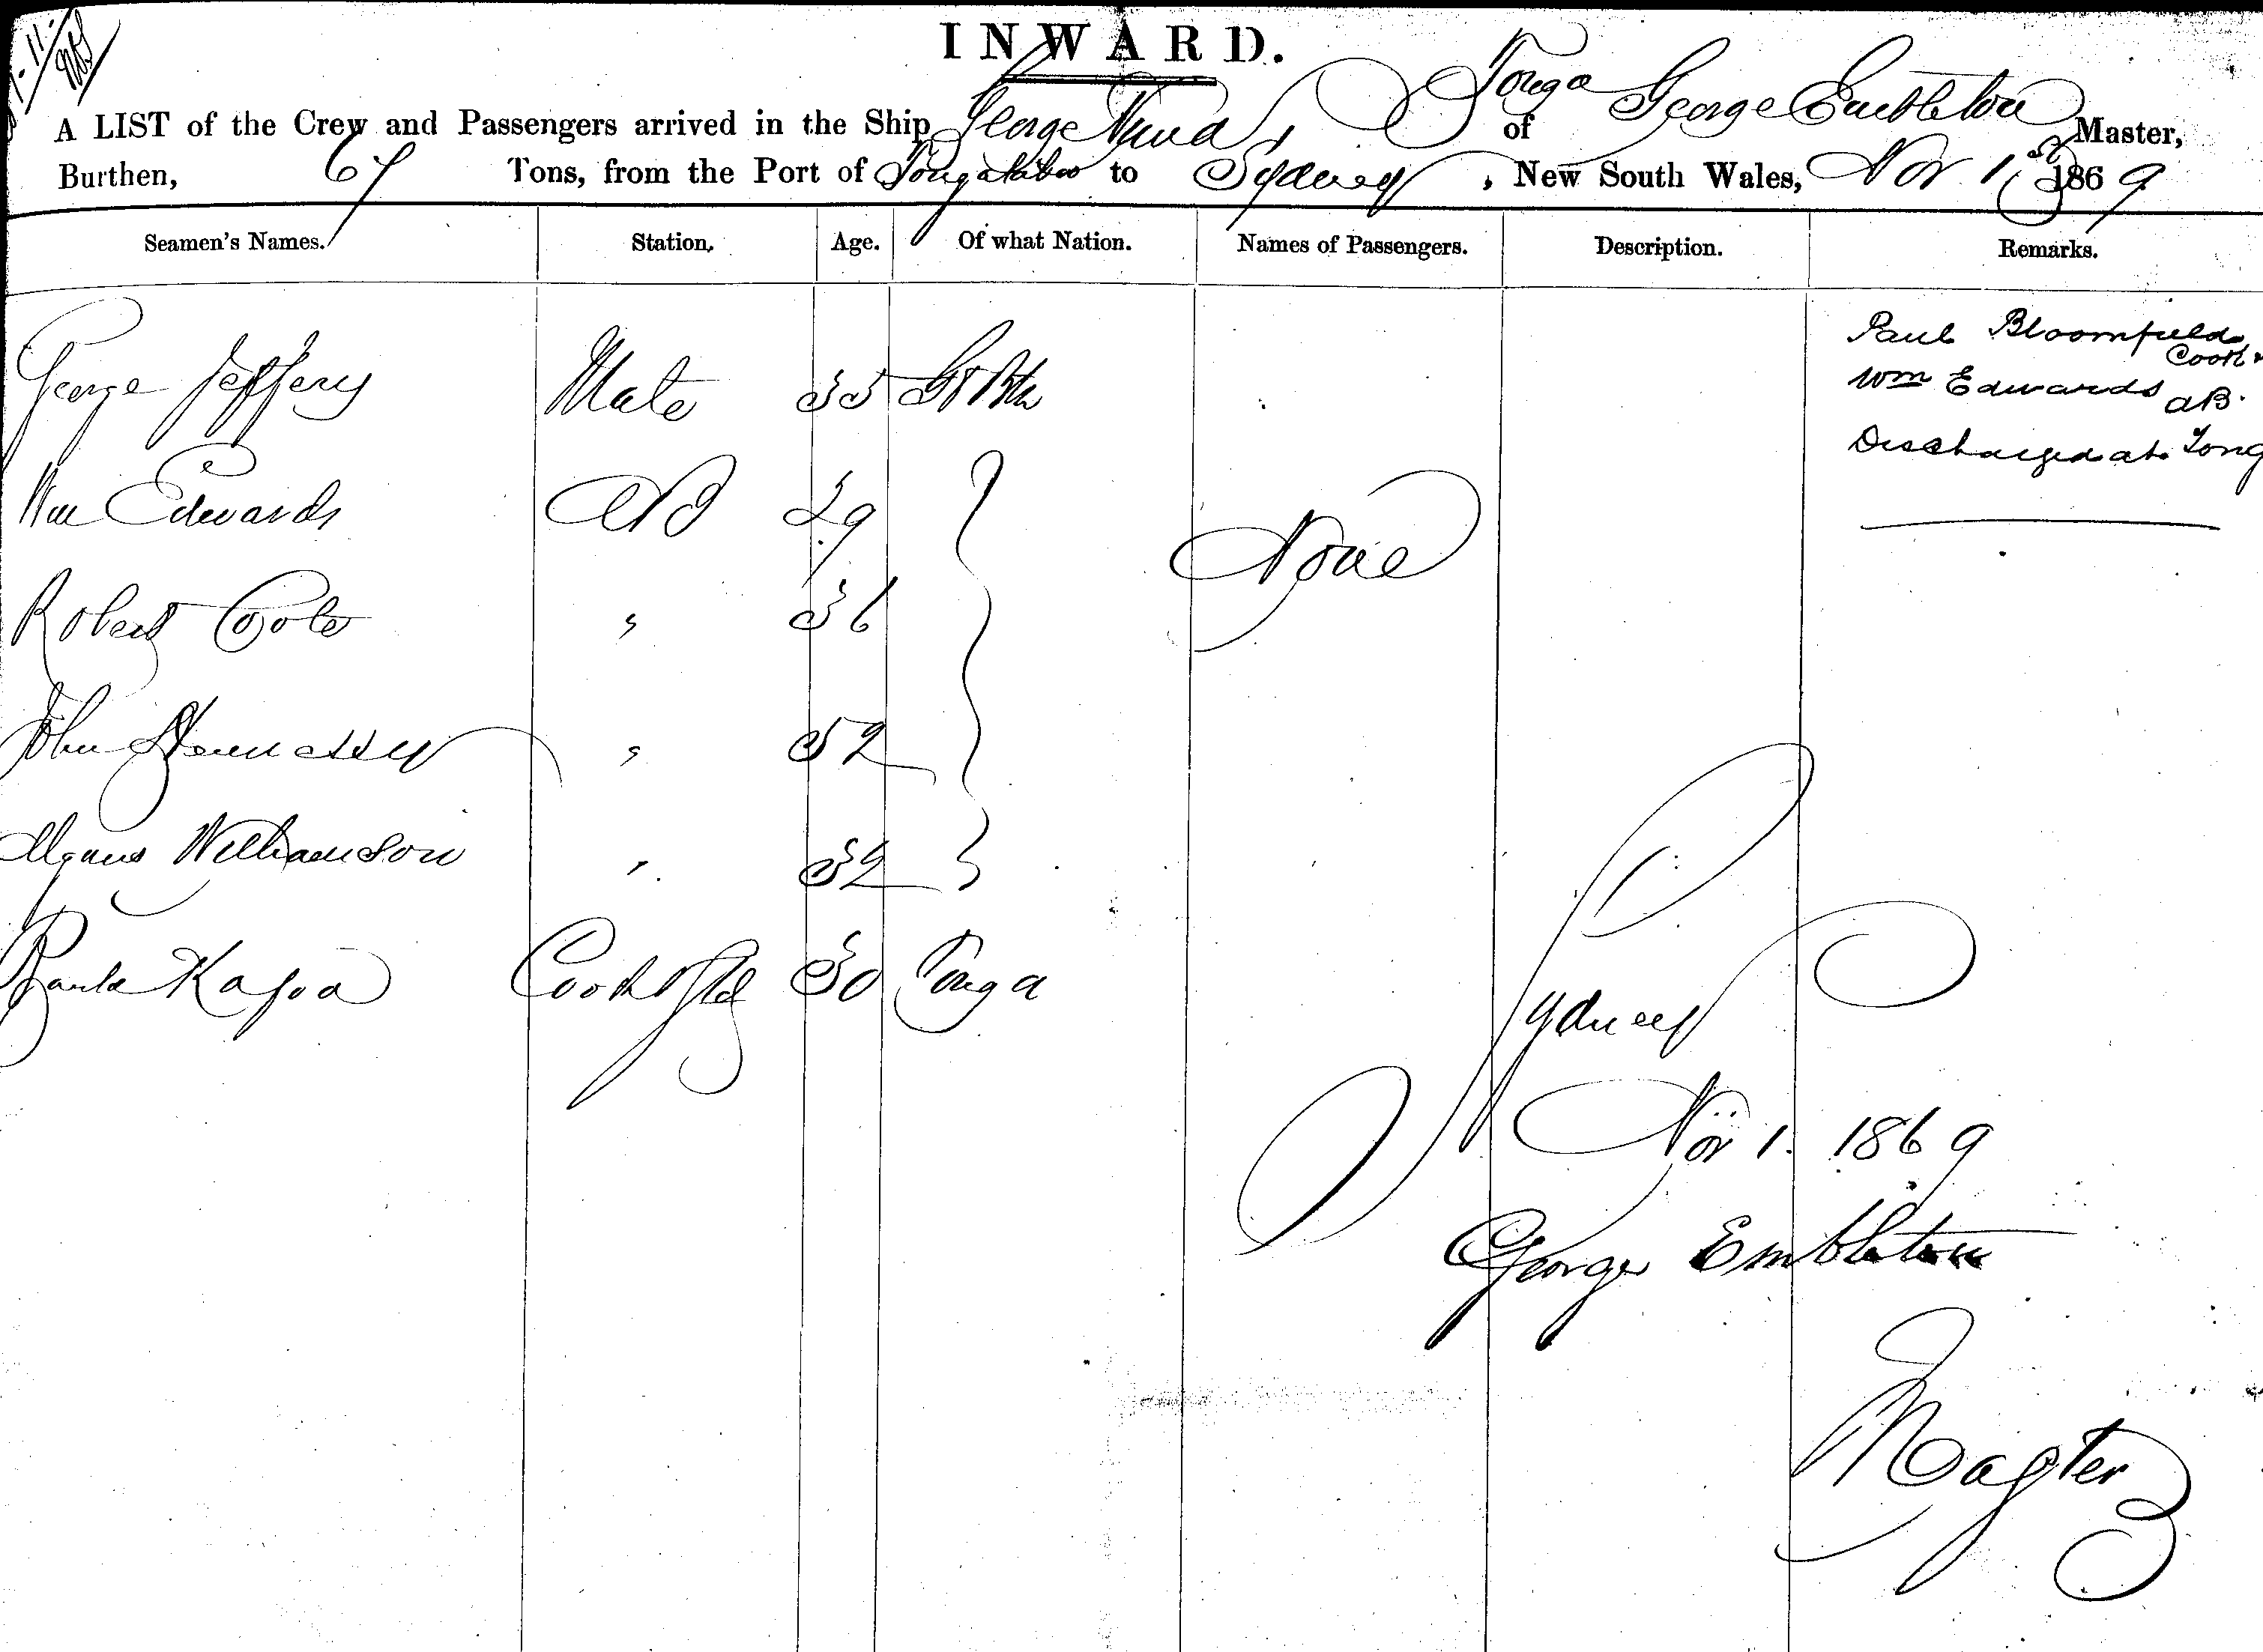 INWARD.
A LIST of the Crew and Passengers arrived in the Ship George of Tonga George Embleton Master,
Burthen, 67 Tons, from the Port of Tongataboo to Sydney, New South Wales, Nov 1st 1869
Seamen's Names. Station. Age. Of what Nation. Names of Passengers. Description. Remarks.
Paul Bloomfield
Cook &
Wm Edwards
AB.
Discharged at Tong
George Jeffery Mate 35 Gt Btn
Wm Edwards AB 29
None
Robert Cole " 36
John Hennessy " 52
Magnus Williamson " 32
Paula Kafoa Cook & Std 30 Tonga
Sydney
Nov 1. 1869
George Embleton
Master